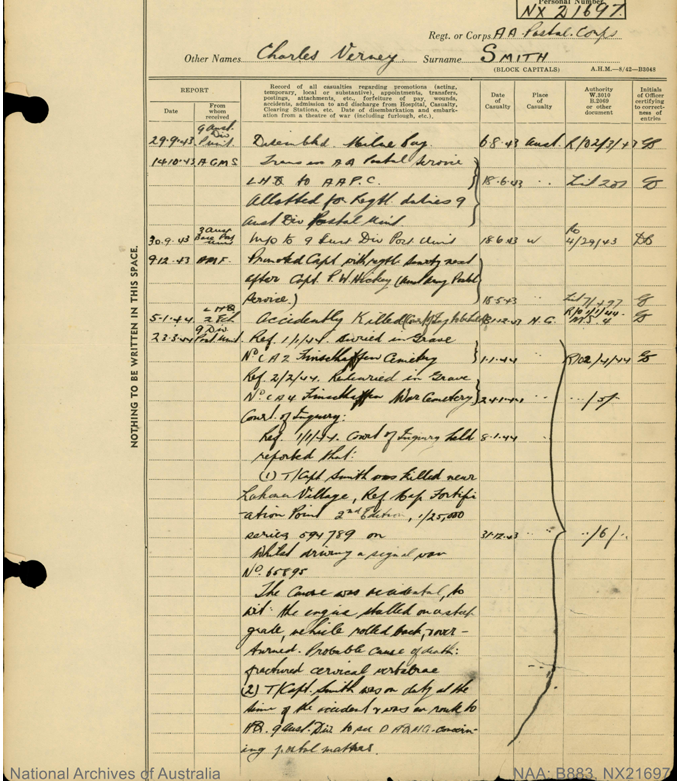 Personal Number
NX 21697.
Regt. or Corps AA Postal Corps
Other Names Charles Verney Surname SMITH
(BLOCK CAPITALS) A.H.M.—8/42—B3048
REPORT
Date
From whom received
Record of all casualties regarding promotions (acting, temporary, local or substantive), appointments, transfers, postings, attachments, etc., forfeiture of pay, wounds, accidents, admission to and discharge from Hospital, Casualty, Clearing Stations, etc. Date of disembarkation and embarkation from a theatre of war (including furlough, etc.).
Date of Casualty
Place of Casualty
Authority W.3010 B.2069 or other document
Initials of Officer certifying to correctness of entries
9 Aust.
Div
29-9-43 P unit Disembkd. Milne Bay. 6.8.43 Aust. R/02/3/43
14.10.43 AGMS Trans on AA Postal Service
LHQ to AAPC. 18.6.43
Allotted for Regtl duties 9
Aust Div Postal Unit
30.9.43 Base Post Unit M/O to 9 Aust Div Post Unit 18.6.43 4/29/43
9.12.43 Promoted Capt with regtl seniority next
after Capt. P.W. Hickey (Aust Army Postal
Service.) 18.5.43
5-1-44 LHQ 2 Ech Accidently Killed N.G.
23-3-44 9 Div Post Unit Ref. 1/1/44. Buried in Grave
No C A 2 Finschhaffen Cemetery 1-1-44 R/02/4/44
Ref. 2/2/44. Reburied in Grave
No C A 4 Finschhaffen War Cemetery 24-1-44
Court of Inquiry:
Ref. 1/1/44. Court of Inquiry held 8-1-44
reported that:
(1) T/Capt Smith was killed near
Village, Ref Map Fortifi
-cation Point 2nd Edition, 1/25,000
series 594789 on 31-12-43
Whilst driving a signal van
No. 65895
The Cause was accidental, to
wit: the engine stalled on a steep
grade, vehicle rolled back, over-
turned. Probable cause of death:
fractured cervical vertebrae
(2) T/Capt. Smith was on duty at the
time of the accident & was en route to
HQ. 9 Aust. Div. to see concern-
ing postal matters.
NOTHING TO BE WRITTEN IN THIS SPACE.
National Archives of Australia
NAA: B883, NX21697